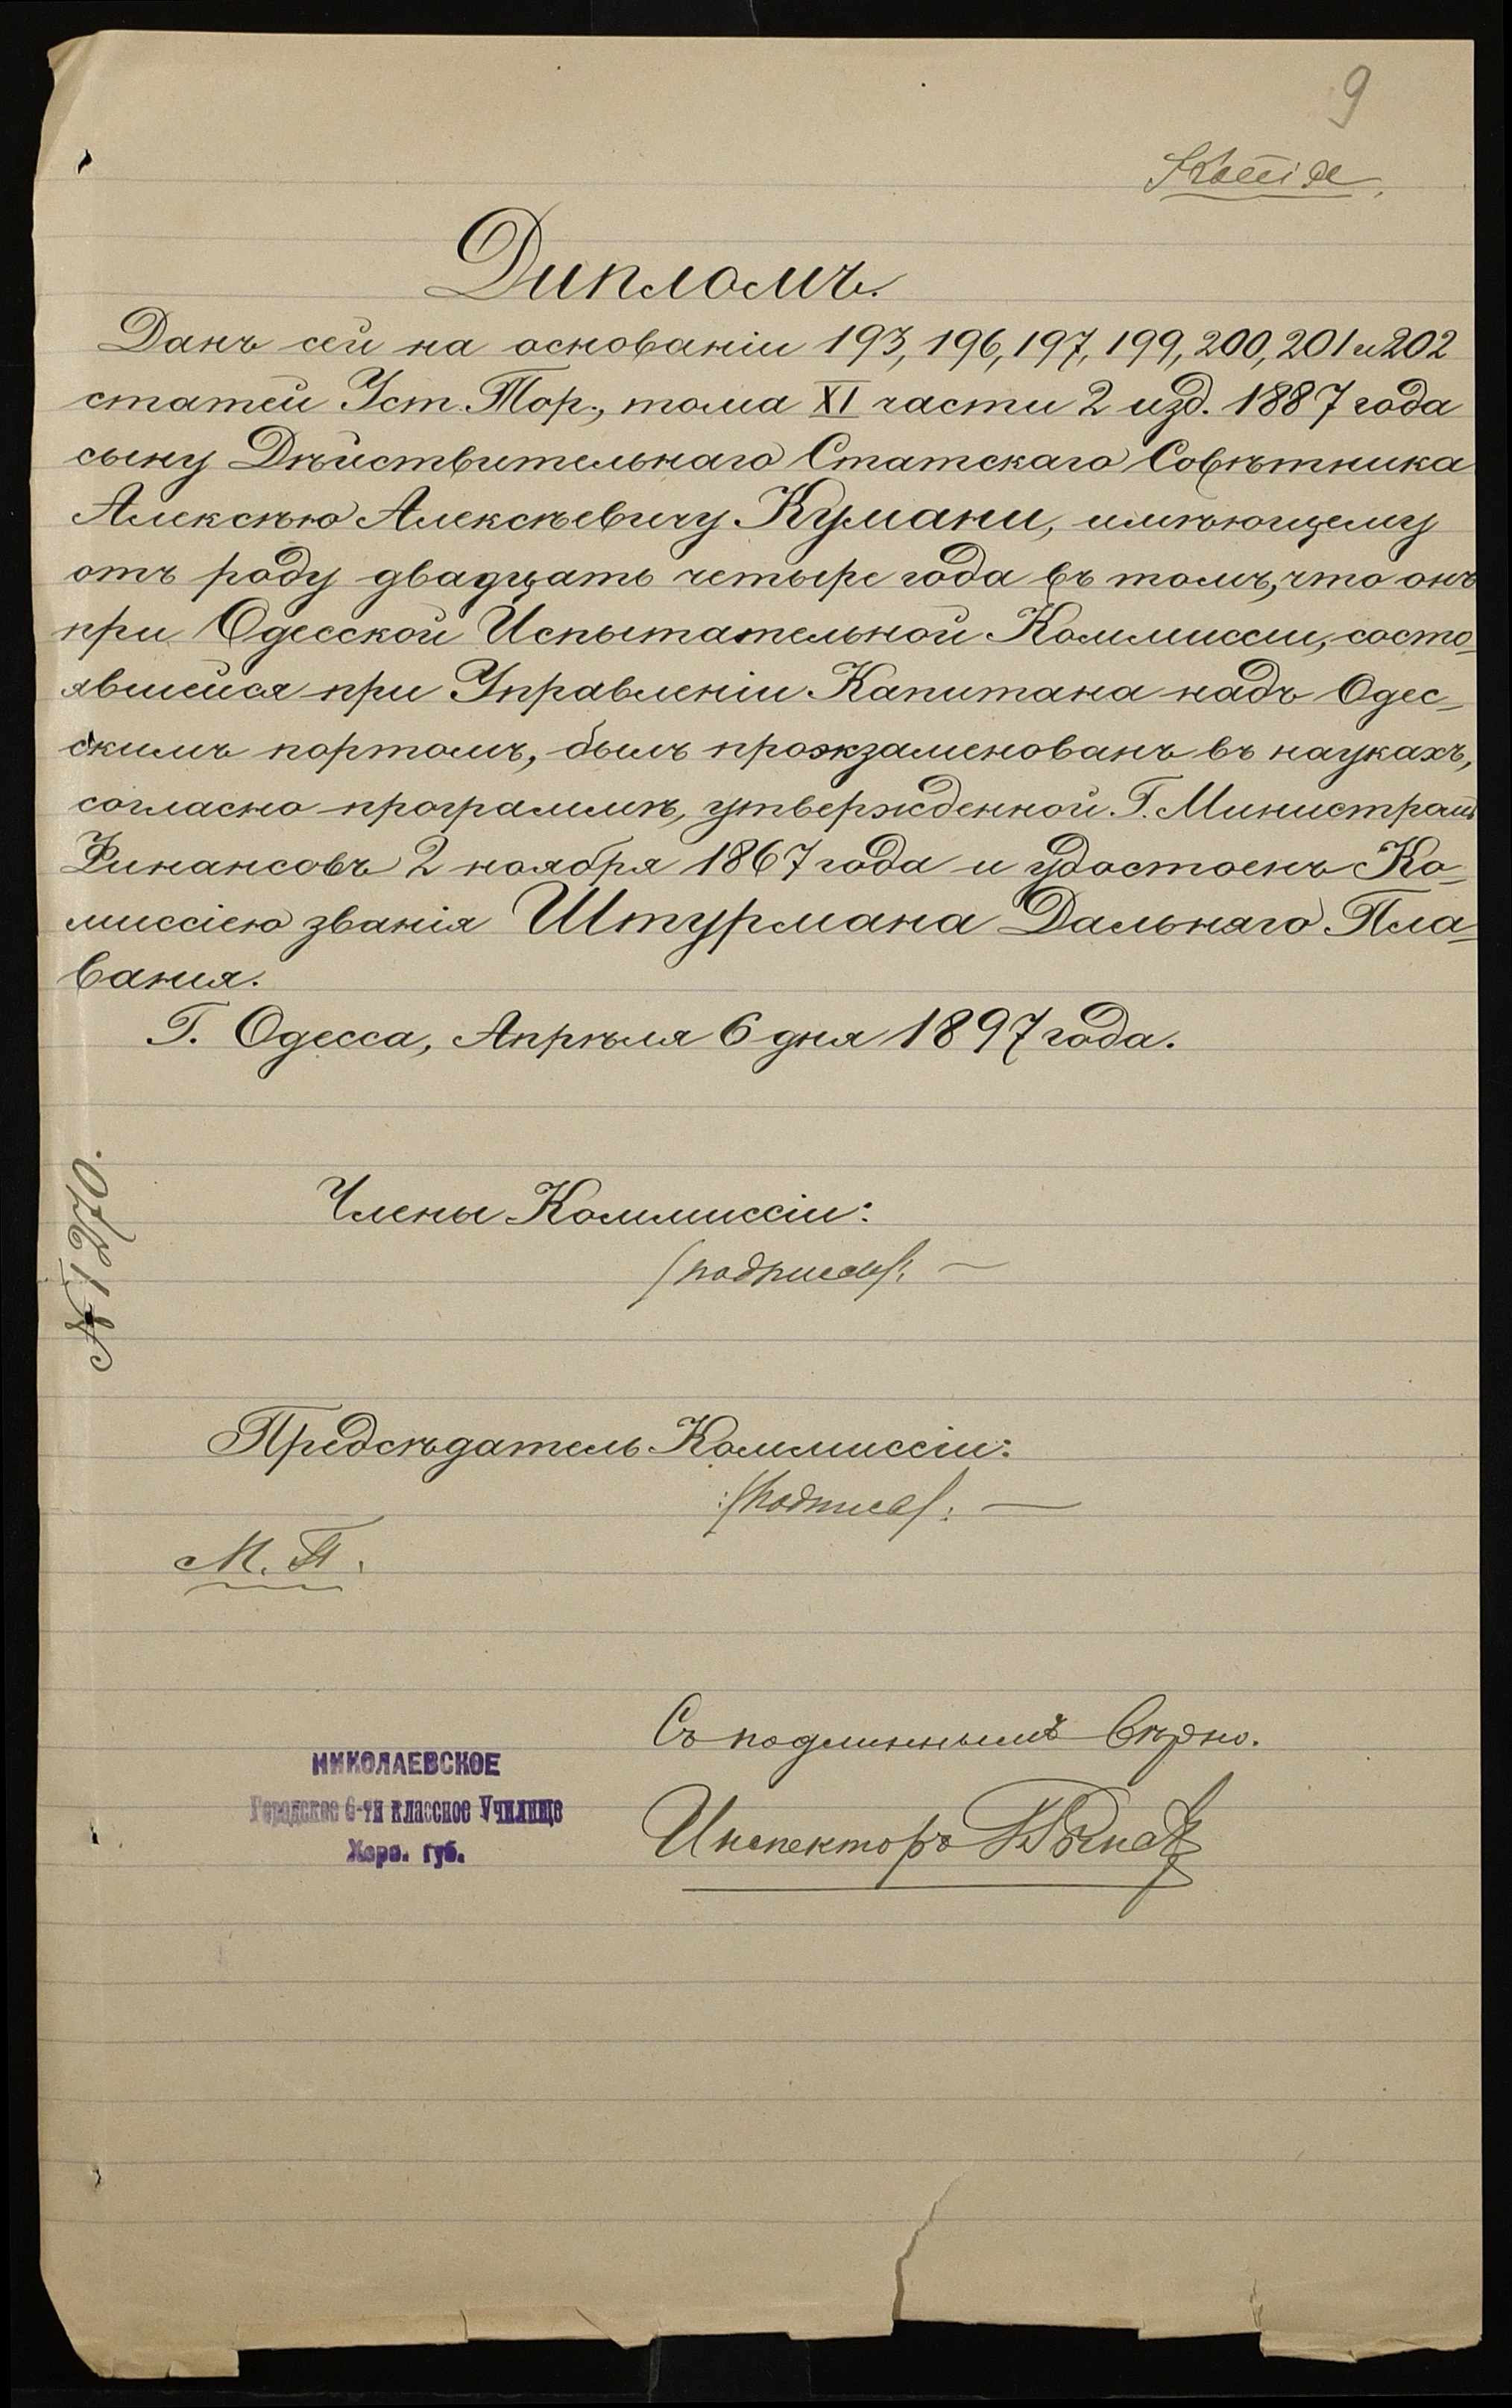 9
Копія.
Дипломъ.
Данъ сей на основаніи 193, 196, 197, 199, 200, 201 и 202
статей Уст. Тор., тома XI части 2 изд. 1887 года
сыну Дѣйствительнаго Статскаго Совѣтника
Алексѣю Алексѣевичу Кумани, имѣющему
отъ роду двадцать четыре года въ томъ, что онъ
при Одесской Испытательной Коммиссии, состо-
явшейся при Управленіи Капитана надъ Одес-
скимъ портомъ, былъ проэкзаменованъ въ наукахъ,
согласно программѣ, утвержденной Г. Министромъ
Финансовъ 2 ноября 1867 года и удостоенъ Ко-
миссіею званія Штурмана Дальняго Пла-
вания.
Г. Одесса, Апрѣля 6 дня 1897 года.
Члены Коммиссіи:
(подписи): —
Предсѣдатель Коммиссіи:
:(подпись): —
М. П.
Съ подлиннымъ вѣрно.
Инспекторъ
НИКОЛАЕВСКОЕ
Городское 6-ти классное Училище
Херс. губ.